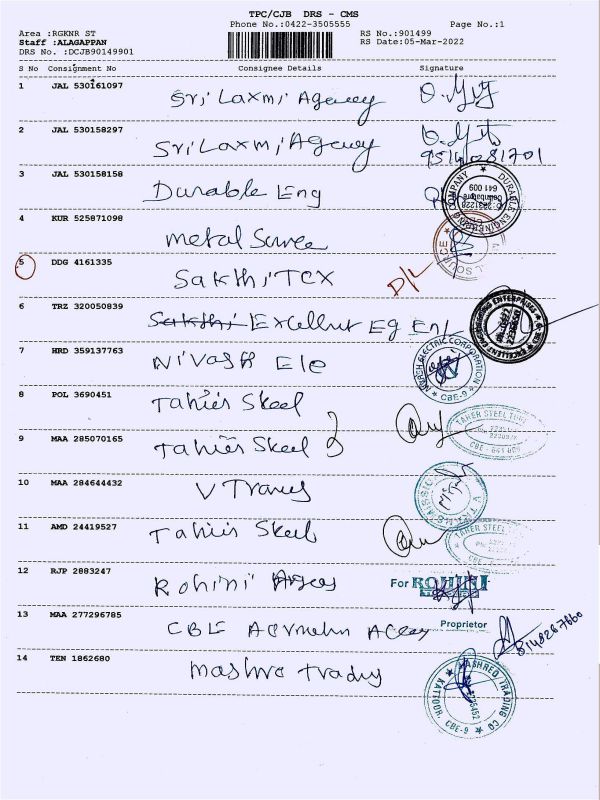 TPC/CJB DRS - CMS
Phone No.:0422-3505555 Page No.:1
Area :RGKNR ST RS No.:901499
Staff :ALAGAPPAN RS Date:05-Mar-2022
DRS No. :DCJB90149901
S No Consignment No Consignee Details Signature
1 JAL 530161097 Sri Laxmi Agency
2 JAL 530158297 Sri Laxmi Agency
3 JAL 530158158 Durable Eng
DURABLE ENGINEERING COMPANY Coimbatore 641 009
4 KUR 525871098 Metal Surce
SOURCE
5 DDG 4161335 Sakthi TEX D/L
6 TRZ 320050839 Sakthi Excellent Eg En
EXCELLENT ENGINEERING ENTERPRISES
7 HRD 359137763 Nivash Ele
ELECTRIC CORPORATION CBE-9
8 POL 3690451 Tahier Steel
TAHER STEEL CBE - 641 009
9 MAA 285070165 Tahier Steel
10 MAA 284644432 V Trans
11 AMD 24419527 Tahier Steel
TAHER STEEL
12 RJP 2883247 Rohini
For ROHINI
Proprietor
13 MAA 277296785 CBE
8148287660
14 TEN 1862680 Mashre Trading
MASHREQ TRADING CO KATTOOR, CBE-9